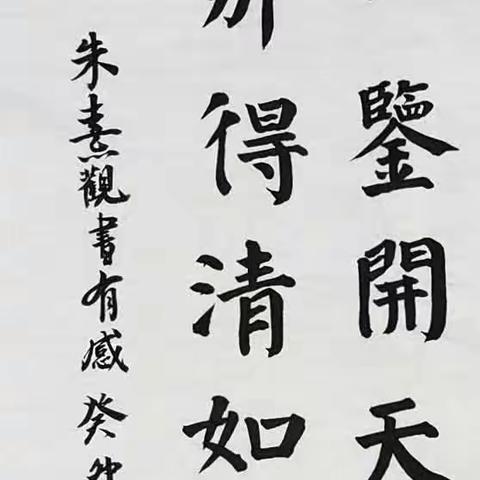 鑒開天
得清如
朱熹觀書有感癸